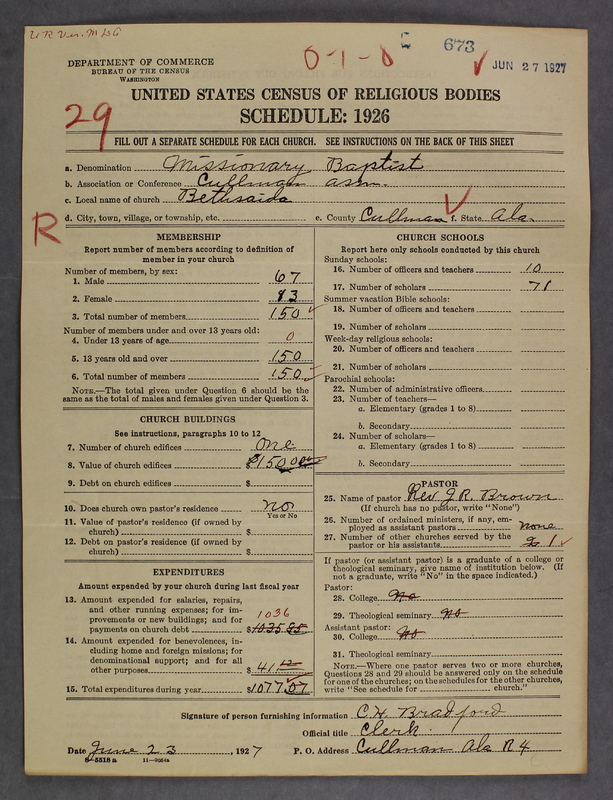 U R Ver. M LG
0-1-0 5 673 JUN 27 1927
DEPARTMENT OF COMMERCE
BUREAU OF THE CENSUS
WASHINGTON
UNITED STATES CENSUS OF RELIGIOUS BODIES
SCHEDULE: 1926
29
FILL OUT A SEPARATE SCHEDULE FOR EACH CHURCH. SEE INSTRUCTIONS ON THE BACK OF THIS SHEET
a. Denomination Missionary Baptist
b. Association or Conference Cullman assn.
c. Local name of church Bethsaida
d. City, town, village, or township, etc. e. County Cullman f. State Ala.
R
MEMBERSHIP
Report number of members according to definition of
member in your church
Number of members, by sex:
1. Male 67
2. Female 83
3. Total number of members 150
Number of members under and over 13 years old:
4. Under 13 years of age 0
5. 13 years old and over 150
6. Total number of members 150
NOTE.—The total given under Question 6 should be the
same as the total of males and females given under Question 3.
CHURCH BUILDINGS
See instructions, paragraphs 10 to 12
7. Number of church edifices one
8. Value of church edifices $1500
9. Debt on church edifices $
10. Does church own pastor's residence? no
Yes or No
11. Value of pastor's residence (if owned by
church) $
12. Debt on pastor's residence (if owned by
church) $
EXPENDITURES
Amount expended by your church during last fiscal year
13. Amount expended for salaries, repairs,
and other running expenses; for im-
provements or new buildings; and for 1036
payments on church debt $1035.95
14. Amount expended for benevolences, in-
cluding home and foreign missions; for
denominational support; and for all
other purposes $41.12
15. Total expenditures during year $1077.07
CHURCH SCHOOLS
Report here only schools conducted by this church
Sunday schools:
16. Number of officers and teachers 10
17. Number of scholars 71
Summer vacation Bible schools:
18. Number of officers and teachers
19. Number of scholars
Week-day religious schools:
20. Number of officers and teachers
21. Number of scholars
Parochial schools:
22. Number of administrative officers
23. Number of teachers—
a. Elementary (grades 1 to 8)
b. Secondary
24. Number of scholars—
a. Elementary (grades 1 to 8)
b. Secondary
PASTOR
25. Name of pastor Rev J.R. Brown
(If church has no pastor, write "None")
26. Number of ordained ministers, if any, em-
ployed as assistant pastors none
27. Number of other churches served by the
pastor or his assistants 1
If pastor (or assistant pastor) is a graduate of a college or
theological seminary, give name of institution below. (If
not a graduate, write "No" in the space indicated.)
Pastor:
28. College No
29. Theological seminary no
Assistant pastor:
30. College No
31. Theological seminary
NOTE.—Where one pastor serves two or more churches,
Questions 28 and 29 should be answered only on the schedule
for one of the churches; on the schedules for the other churches,
write "See schedule for church."
Signature of person furnishing information C.H. Bradford
Official title Clerk.
Date June 23, 1927 P. O. Address Cullman Ala R4
8-5518a 11-9054a